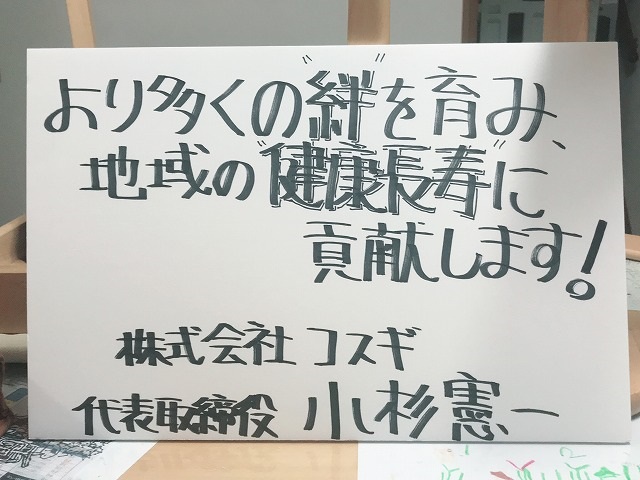 より多くの"絆"を育み、
地域の"健康長寿"に
貢献します!
株式会社 コスギ
代表取締役 小杉憲一